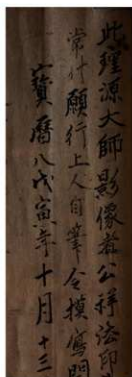 此確源大師影像者公祥法印
常什願行上人自筆令摸寫開
寶曆八戊寅年十月十三